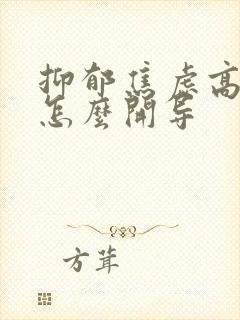 抑郁焦虑高
怎麼開导
方茸